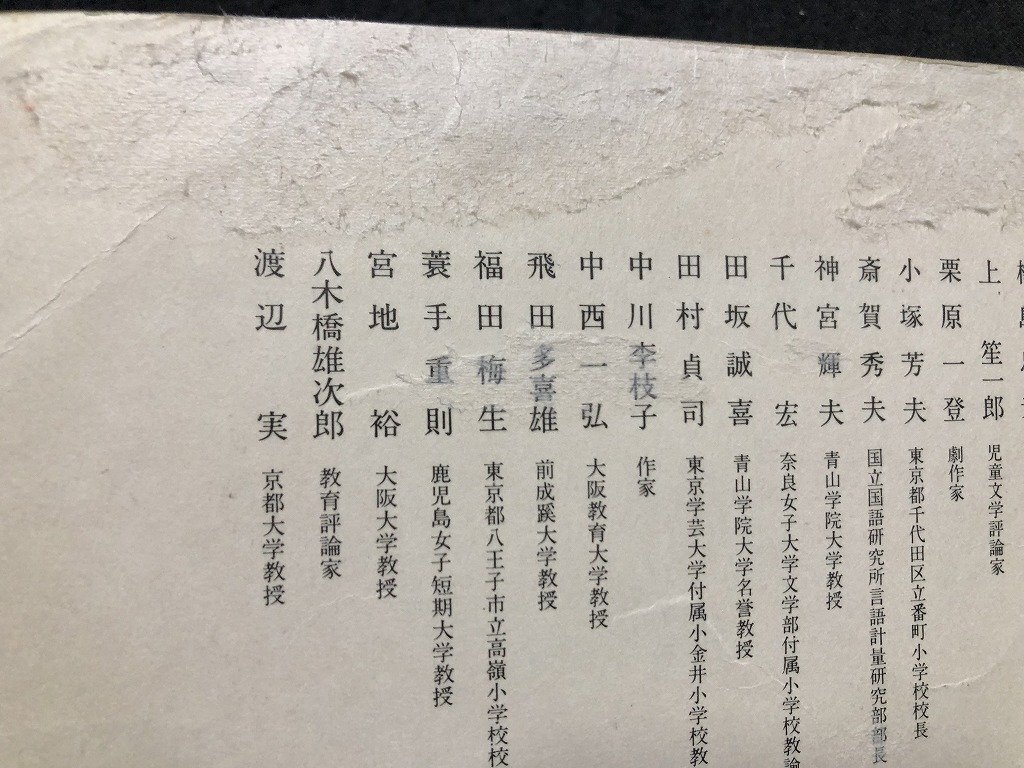 上 笙一郎 児童文学評論家
栗原一登 劇作家
小塚芳夫 東京都千代田区立番町小学校校長
斎賀秀夫 国立国語研究所言語計量研究部部長
神宮輝夫 青山学院大学教授
千代 宏 奈良女子大学文学部付属小学校教諭
田坂誠喜 青山学院大学名誉教授
田村貞司 東京学芸大学付属小金井小学校教
中川李枝子 作家
中西一弘 大阪教育大学教授
飛田多喜雄 前成蹊大学教授
福田梅生 東京都八王子市立高嶺小学校校
蓑手重則 鹿児島女子短期大学教授
宮地 裕 大阪大学教授
八木橋雄次郎 教育評論家
渡辺 実 京都大学教授